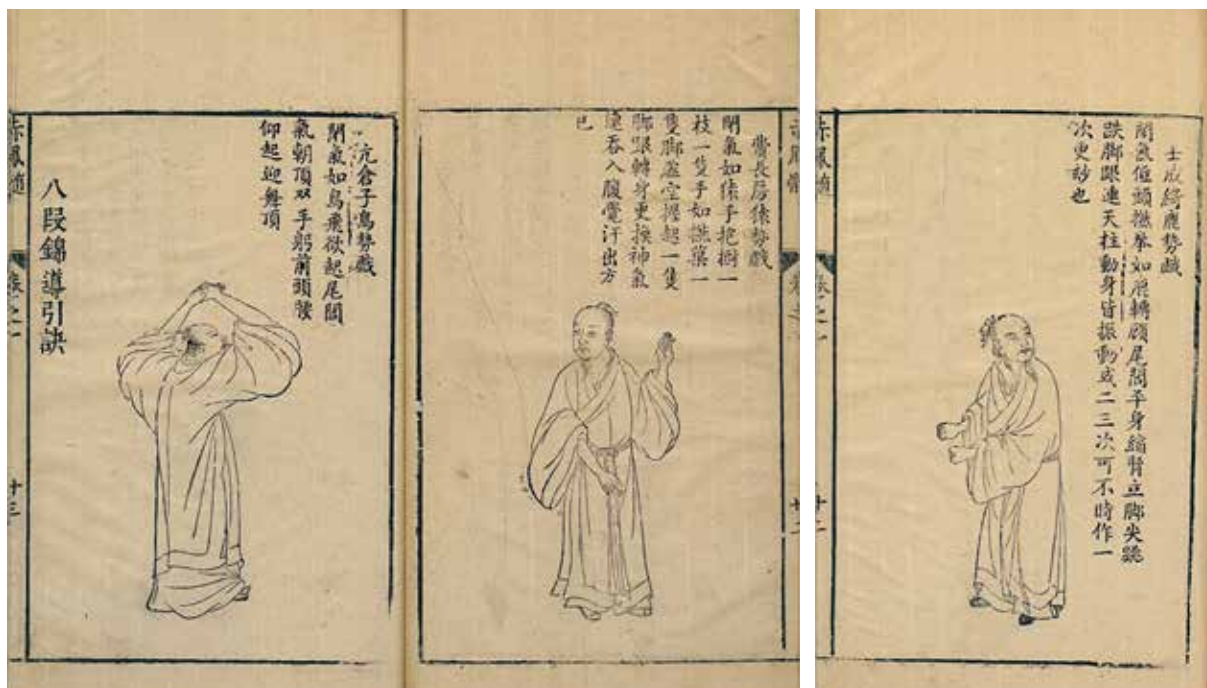 士成綺鹿勢戲
閉氣低頭撚拳如鹿轉顧尾閭平身縮腎立脚尖跳
跌脚跟連天柱動身皆振動或二三次可不時作一
次更妙也
赤鳳髓
卷之一
十二
赤鳳髓
卷之一
十二
費長房猿勢戲
閉氣如猿手抱樹一
枝一隻手如撚菓一
隻脚虛空握起一隻
脚跟轉身更換神氣
連吞入腹覺汗出方
已
亢倉子鳥勢戲
閉氣如鳥飛欲起尾閭
氣朝頂双手躬前頭腰
仰起迎舞頂
八段錦導引訣
赤鳳髓
卷之一
十三